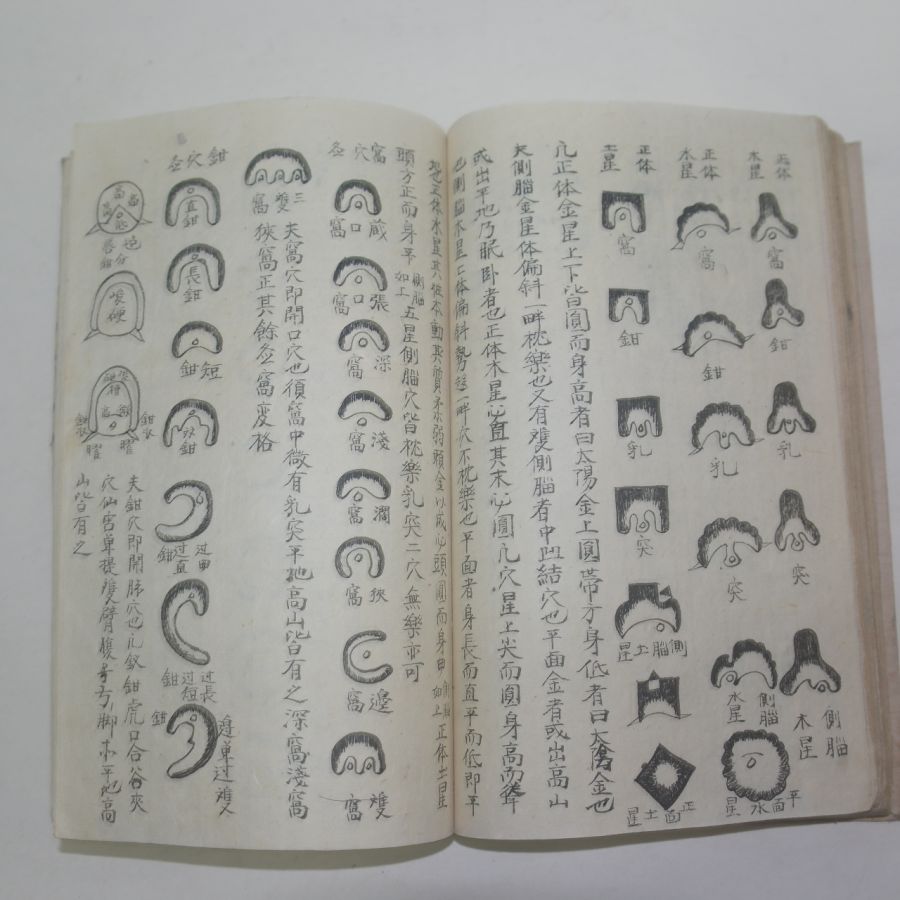 正体木星
窩
鉗
乳
突
側腦木星
正体水星
窩
鉗
乳
突
側腦水星
平面水星
正体土星
窩
鉗
乳
突
側腦土星
正面土星
凢正体金星上下皆圓而身高者曰太陽金上圓帶方身低者曰太陰金也
夫側腦金星体偏斜一畔枕樂也又有雙側腦者中凹結穴也平面金者或出高山
或出平地乃眠卧者也正体木星必直其末必圓凢穴星上尖而圓身高而聳
也側腦木星二体偏斜勢
一畔
不枕樂也平面者身長而直平而低即平
地也正体水星其
頭圓而身
側腦如上正体土星
頭方正而身平側腦如上五星側腦穴皆枕樂乳突二穴無樂亦可
窩穴
藏口窩
張口窩
深窩
淺窩
濶窩
狹窩
邊窩
雙窩
三雙窩
夫窩穴即開口穴也須窩中微有乳突平地高山皆有之深窩淺窩
狹窩正其餘
窩变格
鉗穴
直鉗
長鉗
短鉗
双鉗
过直鉗
过長
过短鉗
鉗
邊
分
鉗
硬
夫鉗穴即開脚穴也凢釵鉗虎口合谷夾
穴仙宮單提雙臂
弓脚
平地高
山皆有之